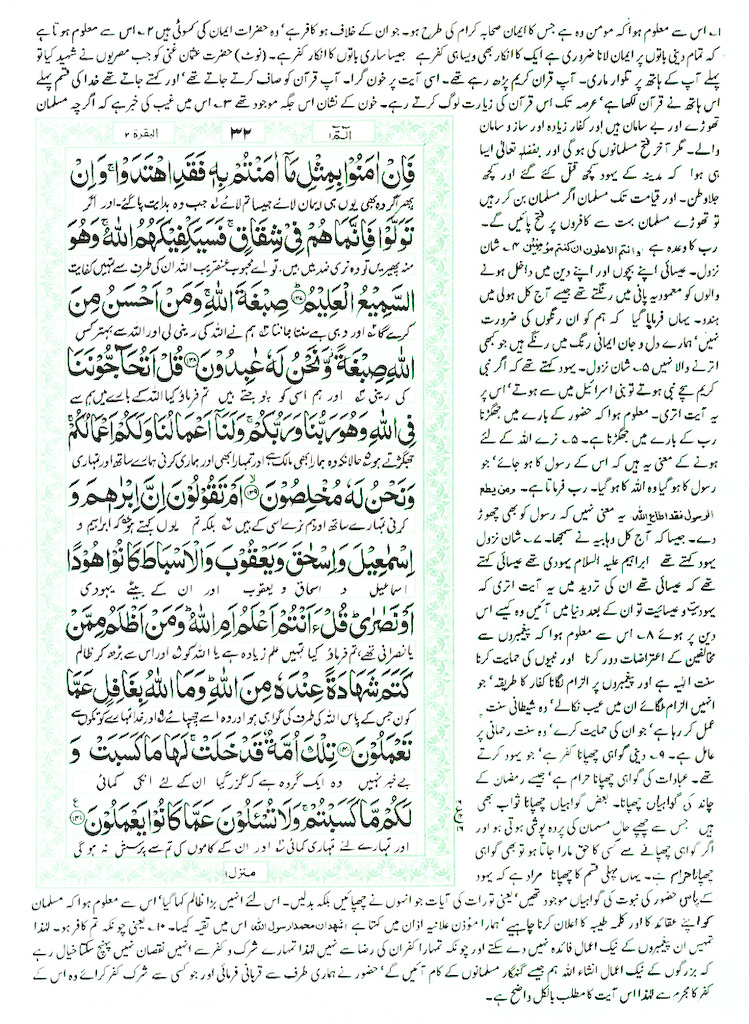 ۱۔ اس سے معلوم ہوا کہ مومن وہ ہے جس کا ایمان صحابہ کرام کی طرح ہو۔ جو ان کے خلاف ہو کافر ہے' وہ حضرات ایمان کی کسوٹی ہیں ۲۔ اس سے معلوم ہوتا ہے
کہ تمام دینی باتوں پر ایمان لانا ضروری ہے ایک کا انکار بھی ویسا ہی کفر ہے جیسا ساری باتوں کا انکار کفر ہے۔ (نوٹ) حضرت عثمان غنی کو جب مصریوں نے شہید کیا تو
پہلے آپ کے ہاتھ پر تلوار ماری۔ آپ قرآن کریم پڑھ رہے تھے۔ اسی آیت پر خون گرا۔ آپ قرآن کو صاف کرتے جاتے تھے' اور کہتے جاتے تھے خدا کی قسم پہلے
اس ہاتھ نے قرآن لکھا ہے' عرصہ تک اس قرآن کی زیارت لوگ کرتے رہے۔ خون کے نشان اس جگہ موجود تھے ۳۔ اس میں غیب کی خبر ہے کہ اگرچہ مسلمان
تھوڑے اور بے سامان ہیں اور کفار زیادہ اور ساز و سامان
والے۔ مگر آخر فتح مسلمانوں کی ہو گی اور بفضلہ تعالیٰ ایسا
ہی ہوا کہ مدینہ کے یہود کچھ قتل کئے گئے اور کچھ
جلاوطن۔ اور قیامت تک مسلمان اگر مسلمان بن کر رہیں
تو تھوڑے مسلمان بہت سے کافروں پر فتح پائیں گے۔
رب کا وعدہ ہے وانتم الاعلون ان کنتم مؤمنین ۴۔ شان
نزول۔ عیسائی اپنے بچوں اور اپنے دین میں داخل ہونے
والوں کو معمودیہ پانی میں رنگتے تھے جیسے آج کل ہولی میں
ہندو۔ یہاں فرمایا گیا کہ ہم کو ان رنگوں کی ضرورت
نہیں' ہمارے دل و جان ایمانی رنگ میں رنگے ہیں جو بھی
اترنے والا نہیں ۵۔ شان نزول۔ یہود کہتے تھے کہ اگر نبی
کریم سچے نبی ہوتے تو بنی اسرائیل میں سے ہوتے' اس پر
یہ آیت اتری۔ معلوم ہوا کہ حضور کے بارے میں جھگڑنا
رب کے بارے میں جھگڑنا ہے۔ ۵۔ نرے اللہ کے لئے
ہونے کے معنی یہ ہیں کہ اس کے رسول کا ہو جائے' جو
رسول کا ہو گیا وہ اللہ کا ہو گیا۔ رب فرماتا ہے۔ ومن یطع
الرسول فقد اطاع اللہ یہ معنی نہیں کہ رسول کو بھی چھوڑ
دے۔ جیسا کہ آج کل وہابیہ نے سمجھا۔ ۷۔ شان نزول
یہود کہتے تھے ابراہیم علیہ السلام یہودی تھے عیسائی کہتے
تھے کہ عیسائی تھے ان کی تردید میں یہ آیت اتری کہ
یہودیت و عیسائیت تو ان کے بعد دنیا میں آئیں وہ کیسے اس
دین پر ہوئے ۸۔ اس سے معلوم ہوا کہ پیغمبروں سے
مخالفین کے اعتراضات دور کرنا اور نبیوں کی حمایت کرنا
سنت الہیہ ہے اور پیغمبروں پر الزام لگانا کفار کا طریقہ' جو
انہیں الزام لگائے ان میں عیب نکالے' وہ شیطانی سنت پر
عمل کر رہا ہے' جو ان کی حمایت کرے' وہ سنت رحمانی پر
عامل ہے۔ ۹۔ دینی گواہی چھپانا کفر ہے' جو یہود کرتے
تھے۔ عبادات کی گواہی چھپانا حرام ہے' جیسے رمضان کے
چاند کی گواہیاں چھپانا۔ بعض گواہیاں چھپانا ثواب بھی
ہیں جس سے چھپے حال مسلمان کی پردہ پوشی ہوتی ہو اور
اگر گواہی چھپانے سے کسی کا حق مارا جاتا ہو تو بھی گواہی
چھپانا حرام ہے۔ یہاں پہلی قسم کا چھپانا مراد ہے کہ یہود
الٓمّٓ ۱
۳۲
البقرۃ ۲
فَاِنْ اٰمَنُوْا بِمِثْلِ مَاۤ اٰمَنْتُمْ بِهٖ فَقَدِ اهْتَدَوْاۚ وَاِنْ
پھر اگر وہ بھی یوں ہی ایمان لائے جیسا تم لائے جب وہ ہدایت پا گئے اور اگر
تَوَلَّوْا فَاِنَّمَا هُمْ فِیْ شِقَاقٍۚ فَسَیَكْفِیْكَهُمُ اللّٰهُۚ وَهُوَ
منہ پھیریں تو وہ نری ضد میں ہیں، تو اے محبوب عنقریب اللہ ان کی طرف سے تمہیں کفایت
السَّمِیْعُ الْعَلِیْمُ ؕ۝۱۳۷ صِبْغَةَ اللّٰهِۚ وَمَنْ اَحْسَنُ مِنَ
کرے گا اور وہی ہے سنتا جانتا ہم نے اللہ کی رینی لی اور اللہ سے بہتر کس
اللّٰهِ صِبْغَةً٘ وَّنَحْنُ لَهٗ عٰبِدُوْنَ ۝۱۳۸ قُلْ اَتُحَآجُّوْنَنَا
کی رینی اور ہم اسی کو پوجتے ہیں تم فرماؤ کیا اللہ کے بارے میں ہم سے
فِی اللّٰهِ وَهُوَ رَبُّنَا وَرَبُّكُمْۚ وَلَنَاۤ اَعْمَالُنَا وَلَكُمْ اَعْمَالُكُمْۚ
جھگڑتے ہو حالانکہ وہ ہمارا بھی مالک ہے اور تمہارا بھی اور ہماری کرنی ہمارے ساتھ اور تمہاری
وَنَحْنُ لَهٗ مُخْلِصُوْنَ ۝۱۳۹ اَمْ تَقُوْلُوْنَ اِنَّ اِبْرٰهٖمَ وَ
کرنی تمہارے ساتھ اور ہم نرے اسی کے ہیں بلکہ تم یوں کہتے ہو کہ ابراہیم و
اِسْمٰعِیْلَ وَاِسْحٰقَ وَیَعْقُوْبَ وَالْاَسْبَاطَ كَانُوْا هُوْدًا
اسماعیل و اسحاق و یعقوب اور ان کے بیٹے یہودی
اَوْ نَصٰرٰیؕ قُلْ ءَاَنْتُمْ اَعْلَمُ اَمِ اللّٰهُؕ وَمَنْ اَظْلَمُ مِمَّنْ
یا نصرانی تھے، تم فرماؤ کیا تمہیں علم زیادہ ہے یا اللہ کو اور اس سے بڑھ کر ظالم
كَتَمَ شَهَادَةً عِنْدَهٗ مِنَ اللّٰهِؕ وَمَا اللّٰهُ بِغَافِلٍ عَمَّا
کون جس کے پاس اللہ کی طرف کی گواہی ہو اور وہ اسے چھپائے اور خدا تمہارے کوتکوں سے
تَعْمَلُوْنَ ۝۱۴۰ تِلْكَ اُمَّةٌ قَدْ خَلَتْۚ لَهَا مَا كَسَبَتْ وَ
بے خبر نہیں وہ ایک گروہ ہے کہ گزر گیا ان کے لئے انکی کمائی
لَكُمْ مَّا كَسَبْتُمْۚ وَلَا تُسْـَٔلُوْنَ عَمَّا كَانُوْا یَعْمَلُوْنَ ۝۱۴۱
اور تمہارے لئے تمہاری کمائی اور ان کے کاموں کی تم سے پرسش نہ ہو گی
منزل ۱
کے پاس حضور کی نبوت کی گواہیاں موجود تھیں' یعنی تورات کی آیات جو انہوں نے چھپائیں بلکہ بدلیں۔ اس لئے انہیں بڑا ظالم کہا گیا' اس سے معلوم ہوا کہ مسلمان
کو اپنے عقائد کا اور کلمہ طیبہ کا اعلان کرنا چاہیے' ہمارا مؤذن علانیہ اذان میں کہتا ہے اشہد ان محمدا رسول اللہ اس میں تقیہ کیسا۔ ۱۰۔ یعنی چونکہ تم کافر ہو۔ لہٰذا
تمہیں ان پیغمبروں کے نیک اعمال فائدہ نہیں دے سکتے اور چونکہ تمہارا کفر ان کی رضا سے نہیں لہٰذا تمہارے شرک و کفر سے انہیں نقصان نہیں پہنچ سکتا خیال رہے
کہ بزرگوں کے نیک اعمال انشاء اللہ ہم جیسے گنہگار مسلمانوں کے کام آئیں گے' حضور نے ہماری طرف سے قربانی فرمائی اور جو کسی سے شرک کفر کرائے وہ اس کے
کفر کا مجرم ہے لہٰذا اس آیت کا مطلب بالکل واضح ہے۔